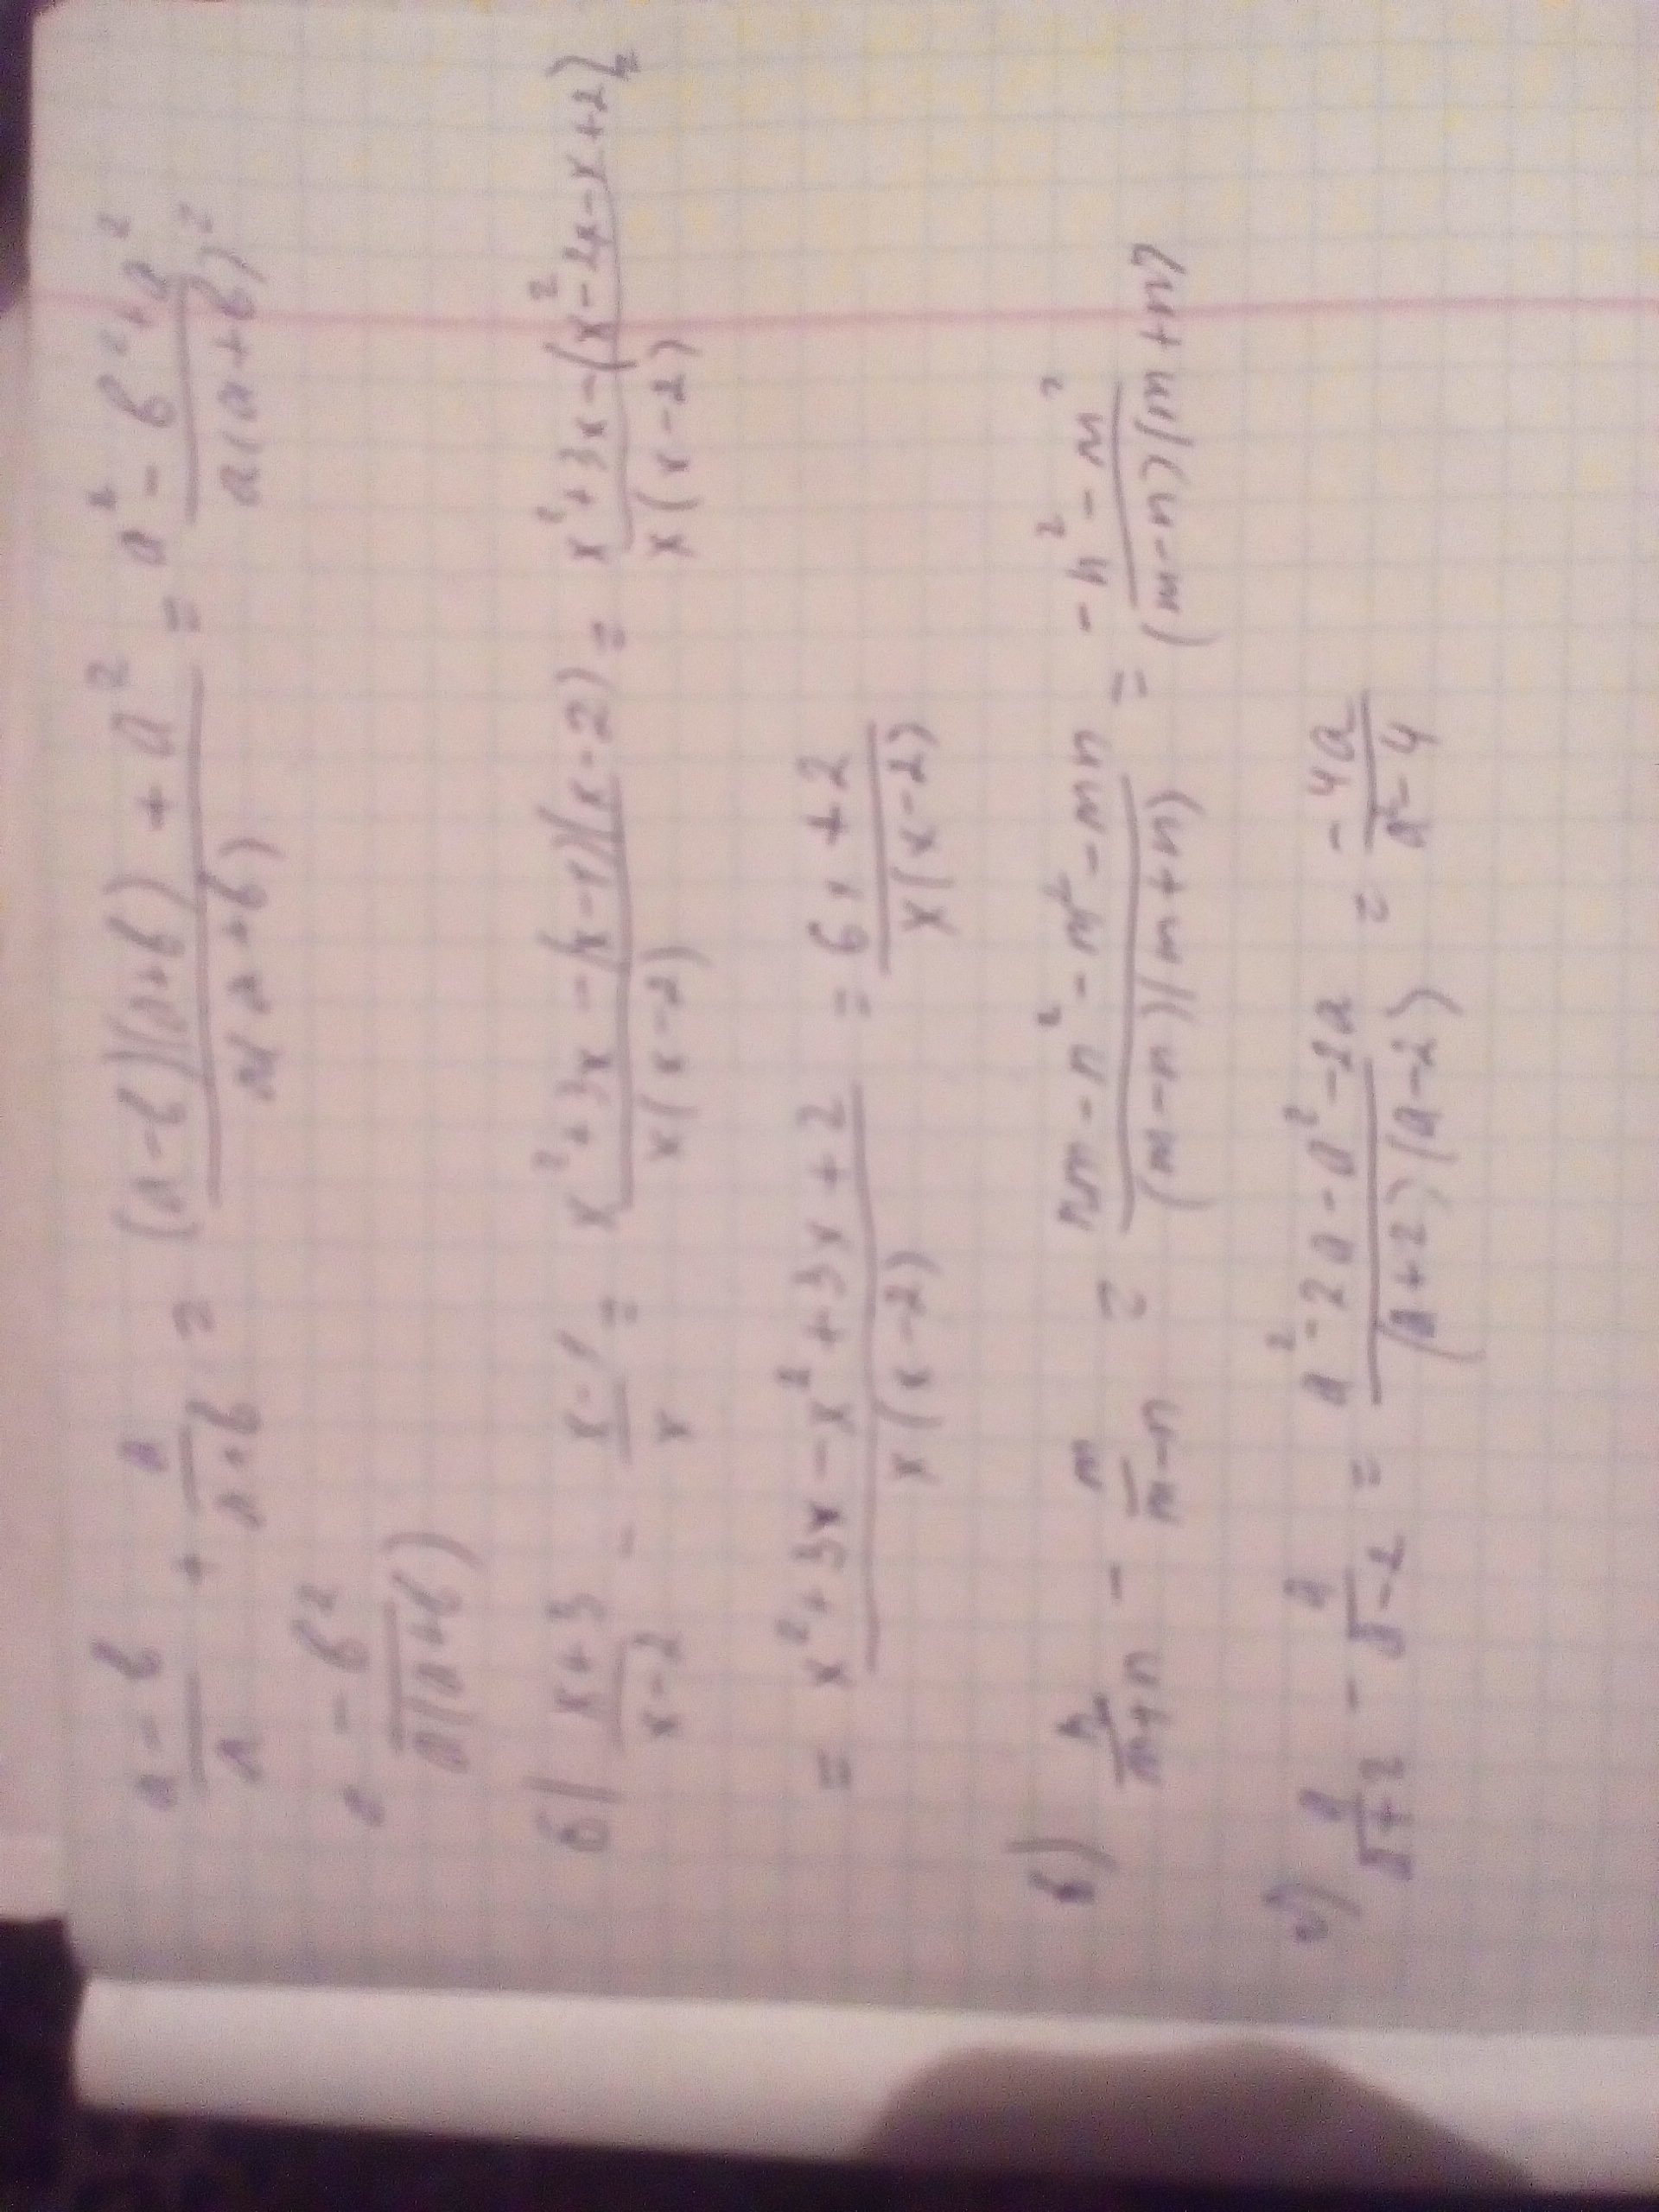 (a-b)/a + a/(a+b) = ((a-b)(a+b) + a²)/(a(a+b)) = (a² - b² + a²)/(a(a+b)) =
- b²/(a(a+b))
б) (x+3)/(x-2) - (x-1)/x = (x²+3x-(x-1)(x-2))/(x(x-2)) = (x²+3x-(x²-2x-x+2))/(x(x-2)) =
= (x²+3x-x²+3x+2)/(x(x-2)) = (6x+2)/(x(x-2))
в) n/(m+n) - m/(m-n) = (nm-n²-m²-mn)/((m-n)(m+n)) = (-n²-m²)/((m-n)(m+n))
г) a/(a+2) - a/(a-2) = (a²-2a-a²-2a)/((a+2)(a-2)) = -4a/(a²-4)